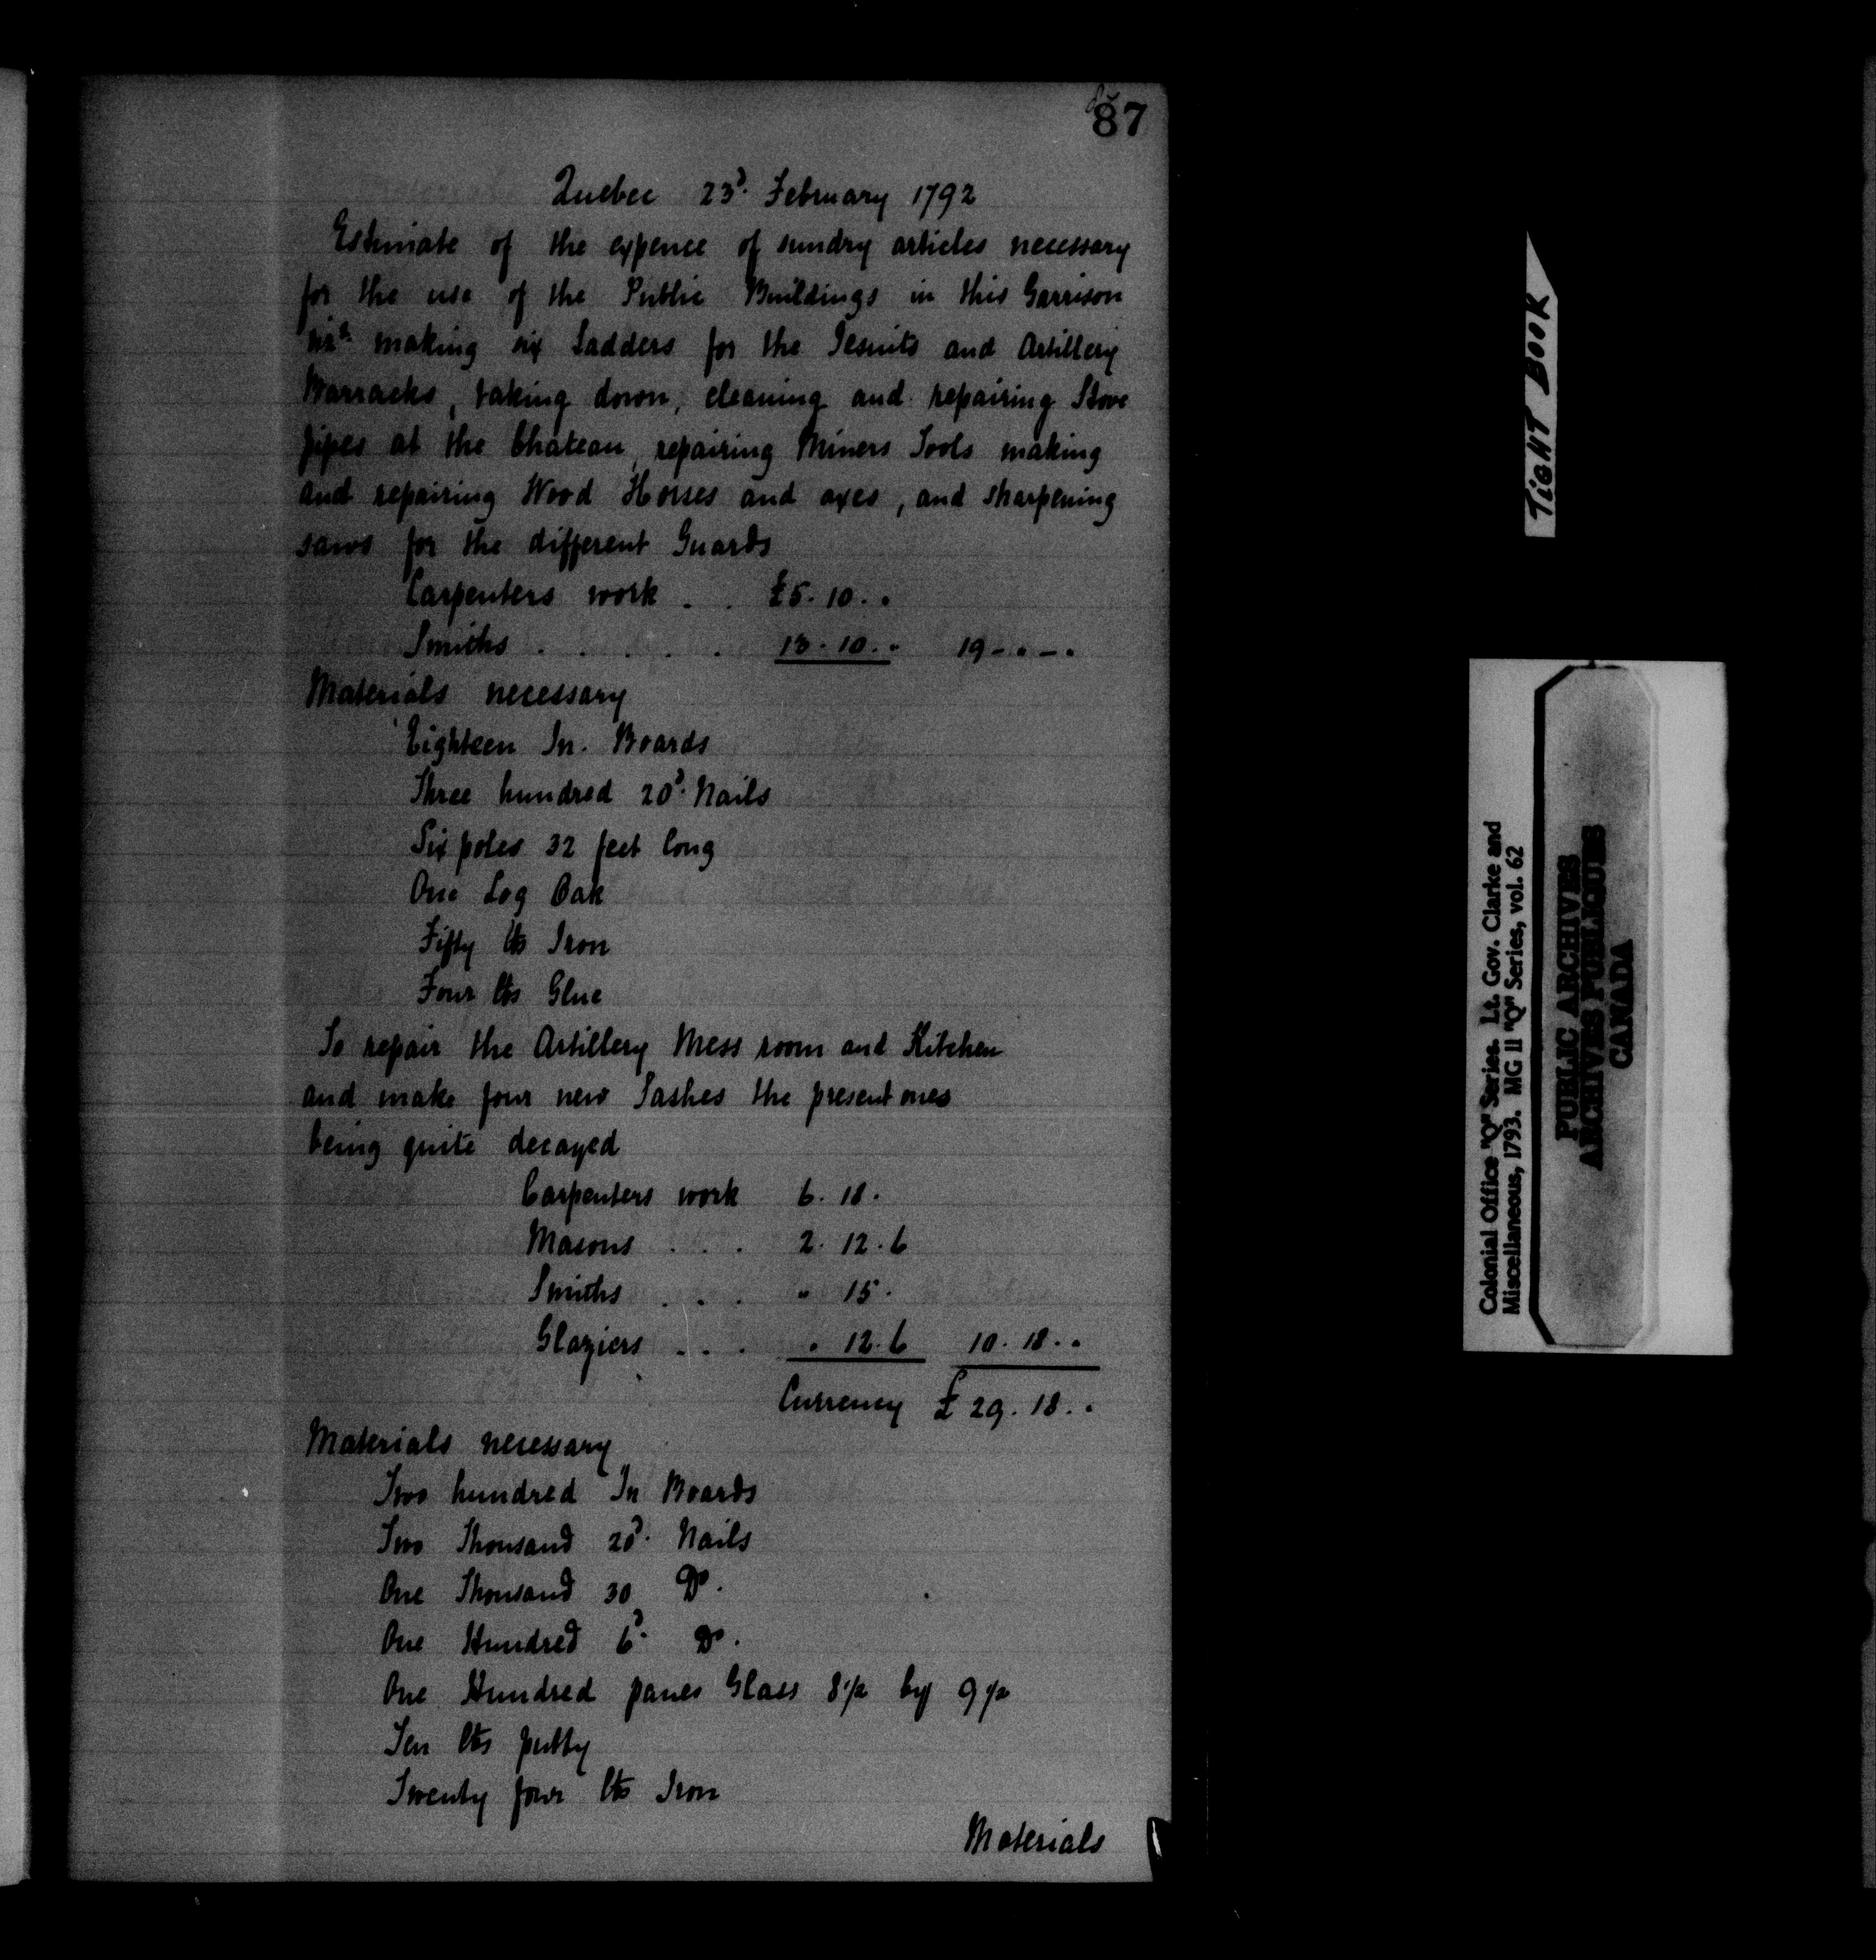 87
Quebec 23d. February 1792
Estimate of the expence of sundry articles necessary
for the use of the Public Buildings in this Garrison
vizt. making six Ladders for the Jesuits and Artillery
Barracks, taking down, cleaning and repairing Stove
pipes at the Chateau, repairing Miners Tools making
and repairing Wood Horses and axes, and sharpening
saws for the different Guards
Carpenters work . . £5. 10. .
Smiths . . . . . 13. 10. . 19 - . - .
Materials necessary
Eighteen In. Boards
Three hundred 20d. Nails
Six poles 32 feet long
One Log Oak
Fifty lbs Iron
Four lbs Glue
To repair the Artillery Mess room and Kitchen
and make four new Sashes the present ones
being quite decayed
Carpenters work 6. 18.
Masons . . . 2. 12. 6
Smiths . . . " 15.
Glaziers . . . " 12. 6 10. 18. .
Currency £ 29. 18. .
Materials necessary
Two hundred In Boards
Two Thousand 20d. Nails
One Thousand 30 Do.
One Hundred 6d. Do.
One Hundred panes Glass 8 1/2 by 9 1/2
Ten lbs putty
Twenty four lbs Iron
Materials
TIGHT BOOK
Colonial Office "Q" Series. Lt. Gov. Clarke and
Miscellaneous, 1793. MG 11 "Q" Series, vol. 62
PUBLIC ARCHIVES
ARCHIVES PUBLIQUES
CANADA